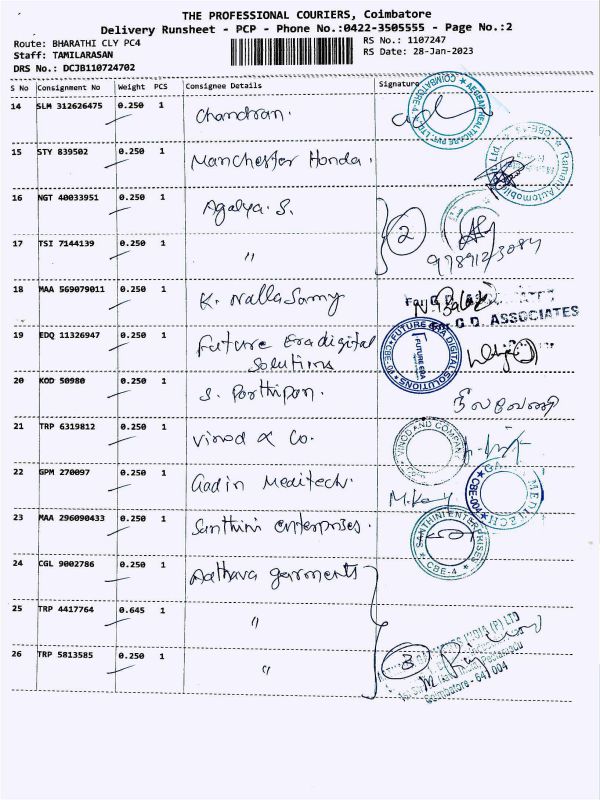 THE PROFESSIONAL COURIERS, Coimbatore
Delivery Runsheet - PCP - Phone No.:0422-3505555 - Page No.:2
Route: BHARATHI CLY PC4
RS No.: 1107247
Staff: TAMILARASAN
RS Date: 28-Jan-2023
DRS No.: DCJB110724702
S No Consignment No Weight PCS Consignee Details Signature
14 SLM 312626475 0.250 1 Chandran.
COIMBATORE-4 AEGEAN HEALTHCARE PVT. LTD.
15 STY 839502 0.250 1 Manchester Honda.
Raman Automobiles Pvt. Ltd. CBE-
16 NGT 40033951 0.250 1 Agalya. S.
2
17 TSI 7144139 0.250 1 "
18 MAA 569079011 0.250 1 K. Nallasamy
For G.D. ASSOCIATES
For G.D. ASSOCIATES
19 EDQ 11326947 0.250 1 Future Eradigital
Solutions
FUTURE ERA DIGITAL SOLUTIONS
FUTURE ERA
20 KOD 50980 0.250 1 S. Parthipan.
21 TRP 6319812 0.250 1 Vinod & Co.
VINOD AND COMPANY
22 GPM 270097 0.250 1 Gadin Meditech.
MEDITECH CBE-004
23 MAA 296090433 0.250 1 Santhini enterprises.
SANTHINI ENTERPRISES CBE-4
24 CGL 9002786 0.250 1 Aathava garments
25 TRP 4417764 0.645 1 "
26 TRP 5813585 0.250 1 "
3
INDIA (P) LTD
Coimbatore - 641 004